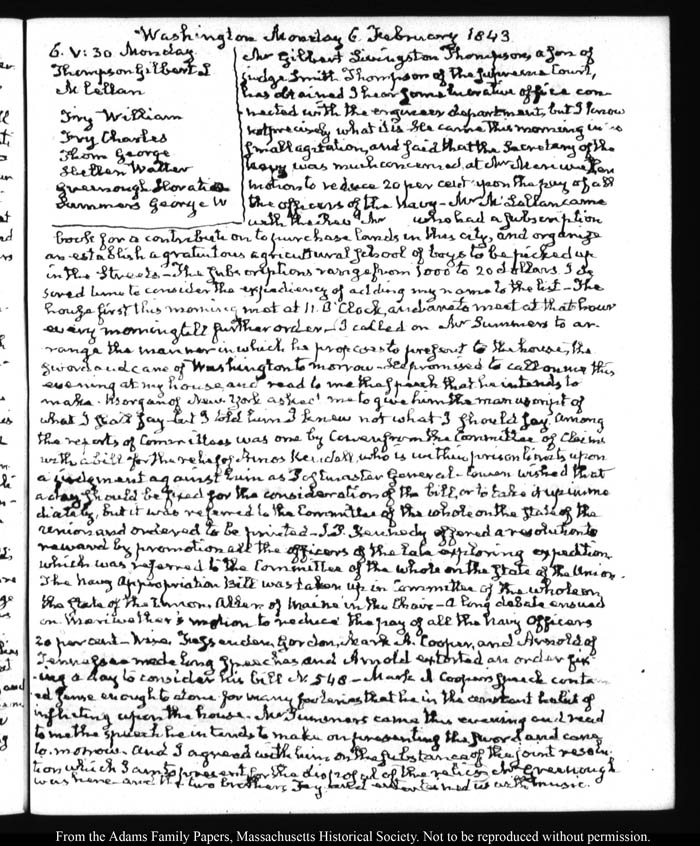 Washington Monday 6. February 1843.
6. V:30 Monday
Thompson Gilbert L
McLellan
Fry William
Fry Charles
Thom George
Hellen Walter
Greenough Horatio
Summers George W
Mr Gilbert Livingston Thompson, a Son of
judge Smith Thompson of the Supreme Court,
has obtained I hear some lucrative office con-
nected with the engineer department, but I know
not precisely what it is. He came this morning in
small agitation, and said that the Secretary of the
Navy was much concerned at Mr Meriwether
motion to reduce 20 per cent upon the pay of all
the officers of the Navy - Mr McLellan came
with the Revd Mr who had a subscription
book for a contribution to purchase lands in this city, and organize
an establish a gratuitous agricultural School of boys to be picked up
in the Streets - The subscriptions range from 1000 to 20 dollars I de
sired time to consider the expediency of adding my name to the list - The
house first this morning met at 11. O'Clock, and are to meet at that hour
every morning till further order - I called on Mr Summers to ar-
range the manner in which he proposes to present to the house, the
sword and cane of Washington to morrow - He promised to call on me this
evening at my house, and read to me the speech that he intends to
make. Morgan of New York asked me to give him the manuscript of
what I shall say - but I told him I knew not what I should say. Among
the reports of Committees was one by Cowen from the Committee of Claims
with a bill for the relief of Amos Kendall, who is within prison limits upon
a judgement against him as Postmaster General - Cowen wished that
a day should be fixed for the consideration of the bill, or to take it up imme
diately, but it was referred to the Committee of the whole on the State of the
Union and ordered to be printed - J. P. Kennedy offered a resolution to
reward by promotion all the officers of the late exploring expedition.
which was referred to the Committee of the whole on the State of the Union.
The Navy Appropriation Bill was taken up in Committee of the whole on
the State of the Union. Allen of Maine in the Chair - A long debate ensued
on Meriwether's motion to reduce the pay of all the Navy Officers
20 per cent - Wise, Fessenden, Gordon, Mark A. Cooper, and Arnold of
Tennessee made long speeches and Arnold extorted an order fix-
ing a day to consider his bill N. 548 - Mark A Coopers speech contain
ed sense enough to atone for many fooleries that he in the constant habit of
inflicting upon the house. Mr Summers came this evening and read
to me the speech he intends to make on presenting the sword and cane
to morrow. and I agreed with him on the substance of the joint resolu-
tion which I am to present for the disposal of the relics. Mr Greenough
was here and the two brothers Fry who entertained us with music.
From the Adams Family Papers, Massachusetts Historical Society. Not to be reproduced without permission.